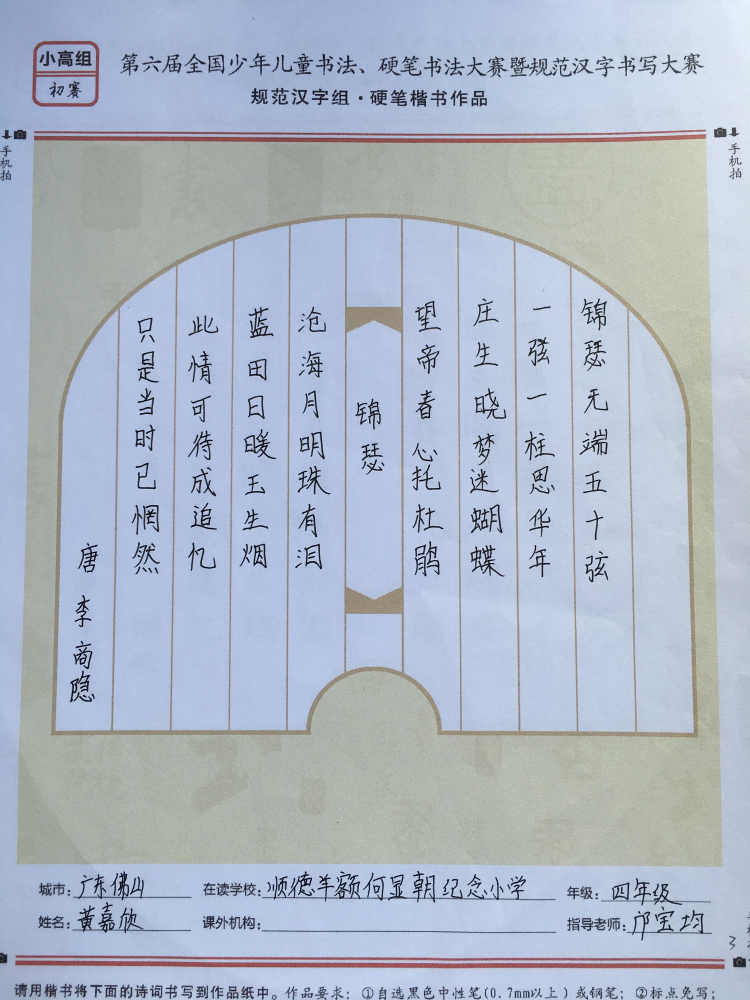 小高组
初赛
第六届全国少年儿童书法、硬笔书法大赛暨规范汉字书写大赛
规范汉字组·硬笔楷书作品
手机拍
手机拍
锦瑟无端五十弦
一弦一柱思华年
庄生晓梦迷蝴蝶
望帝春心托杜鹃
锦瑟
沧海月明珠有泪
蓝田日暖玉生烟
此情可待成追忆
只是当时已惘然
唐李商隐
城市：广东佛山
在读学校：顺德羊额何显朝纪念小学
年级：四年级
姓名：黄嘉欣
课外机构：
指导老师：邝宝均
请用楷书将下面的诗词书写到作品纸中。作品要求：①自选黑色中性笔(0.7mm以上)或钢笔；②标点免写；